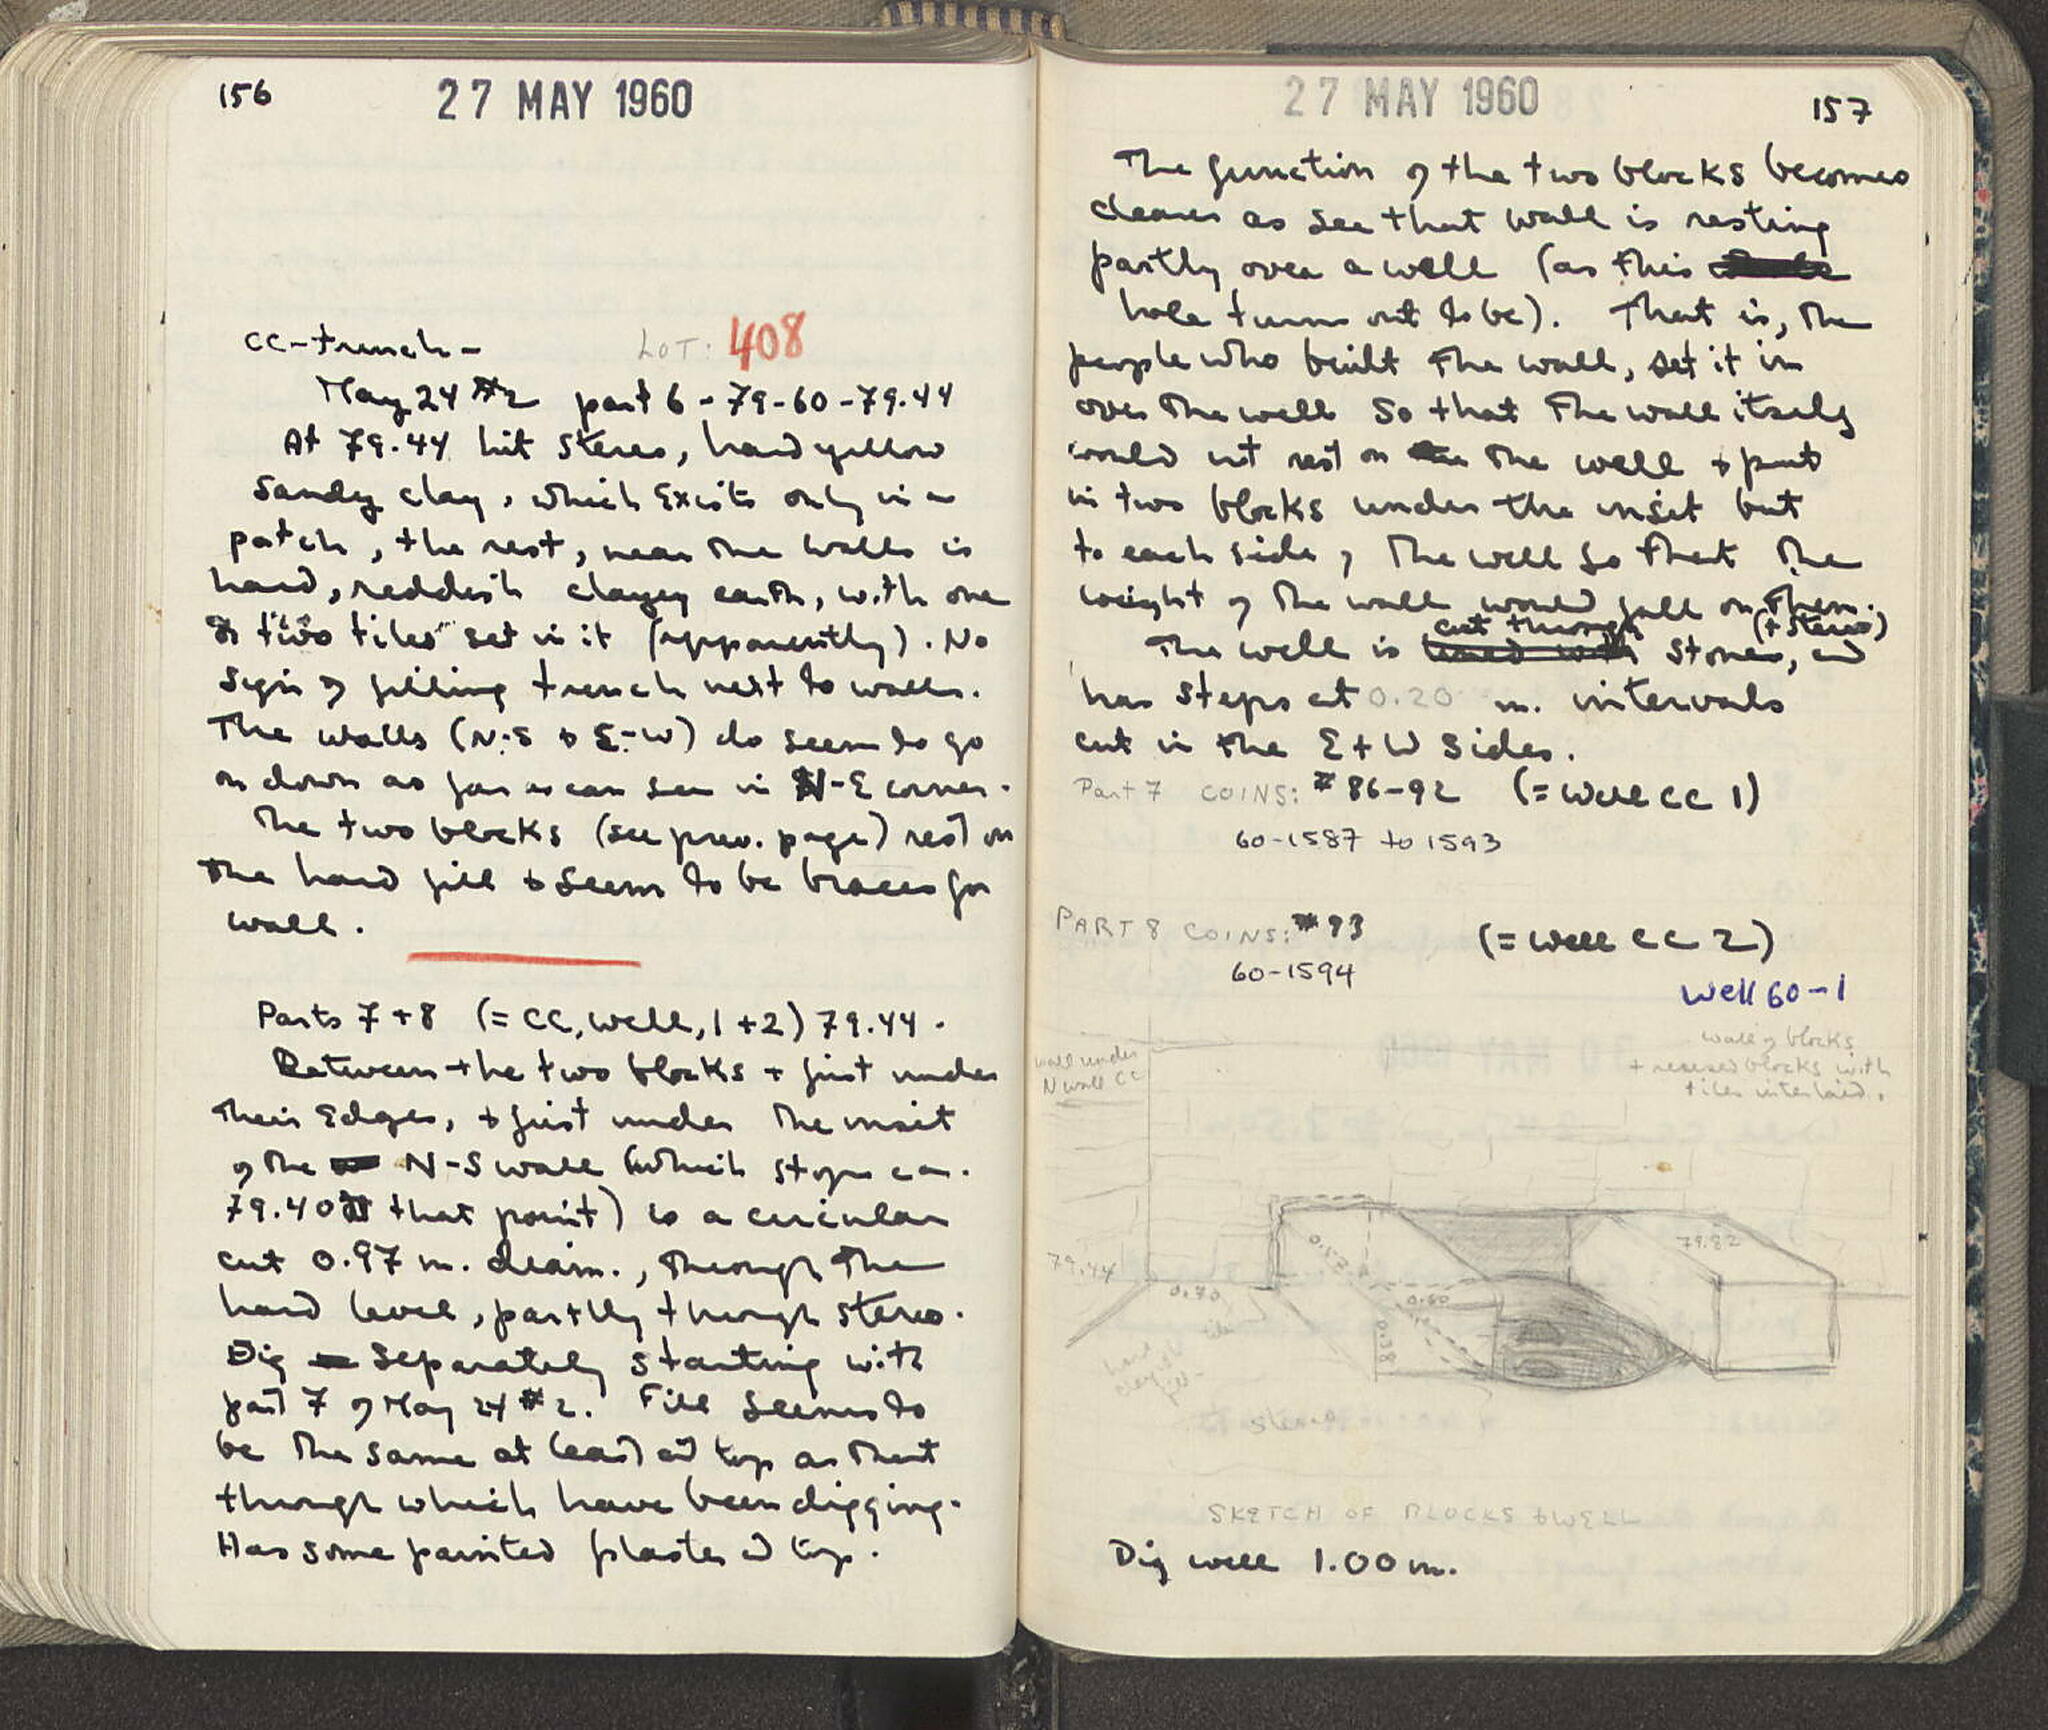 156
27 MAY 1960
CC-trench-
LOT: 408
May 24 #2 part 6 - 79-60-79.44
At 79.44 hit stereo, hard yellow
sandy clay, which exists only in a
patch, the rest, near the walls is
hard, reddish clayey earth, with one
or two tiles set in it (apparently). No
sign of filling trench next to walls.
The walls (N-S & E-W) do seem to go
on down as far as can see in N-E corner.
The two blocks (see prev. page) rest on
the hard fill & seem to be braces for
wall.
Parts 7+8 (= CC, well, 1+2) 79.44.
Between the two blocks + just under
their edges, + just under the inset
of the N-S wall (which stops ca.
79.40 at that point) is a circular
cut 0.97 m. diam., through the
hard level, partly through stereo.
Dig separately starting with
part 7 of May 24 #2. Fill seems to
be the same at least at top as that
through which have been digging.
Has some painted plaster at top.
27 MAY 1960
157
The function of the two blocks becomes
clearer as see that wall is resting
partly over a well (as this
hole turns out to be). That is, the
people who built the wall, set it in
over the well so that the wall itself
would not rest on the well & put
in two blocks under the inset but
to each side of the well so that the
weight of the wall would fall on them.
The well is lined with cut through stones, (+ stereo) and
has steps at 0.20 m. intervals
cut in the E + W sides.
Part 7 COINS: #86-92 (= Well CC 1)
60-1587 to 1593
PART 8 COINS: #93 (= Well CC 2)
60-1594
Well 60-1
wall of blocks
+ reused blocks with
tiles interlaid.
wall under
N wall CC
79.82
79.44
0.70
0.50
0.38
tile
hard
clayey
fill
stereo
SKETCH OF BLOCKS & WELL
Dig well 1.00 m.